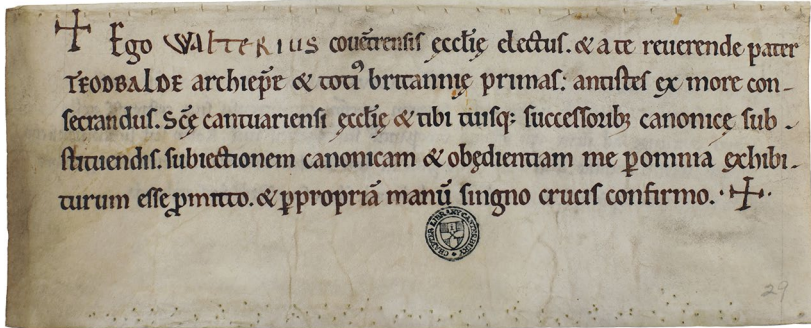 ✝ Ego WALTERIUS coventrensis ęcclię electus. & a te reverende pater
TEODBALDE archiep̄e & toti᾿ britannię primas: antistes ex more con-
secrandus. Scę cantuariensi ęcclię & tibi tuisq: successorib; canonicę sub-
stituendis. subiectionem canonicam & obędientiam me ꝑ omnia ęxhibi-
turum esse ꝓmitto. & ꝑ propriā manū singno crucis confirmo. · ✝ ·
CHAPTER LIBRARY CANTERBURY
29